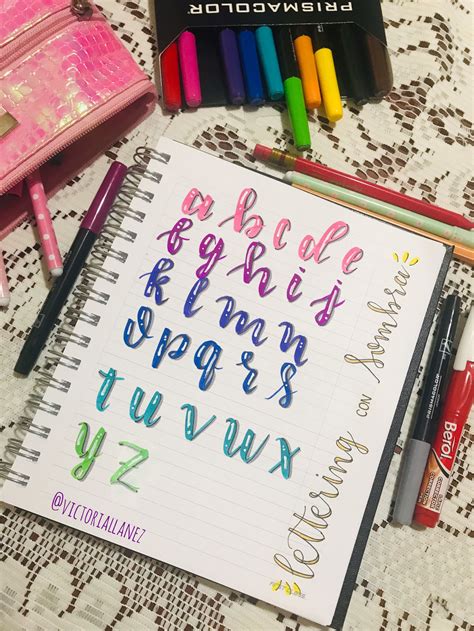 PRISMACOLOR
a b c d e
f g h i j
k l m n
o p q r s
t u v w x
y z
lettering con sombra
@VICTORIALLANEZ
PRISMACOLOR
Berol